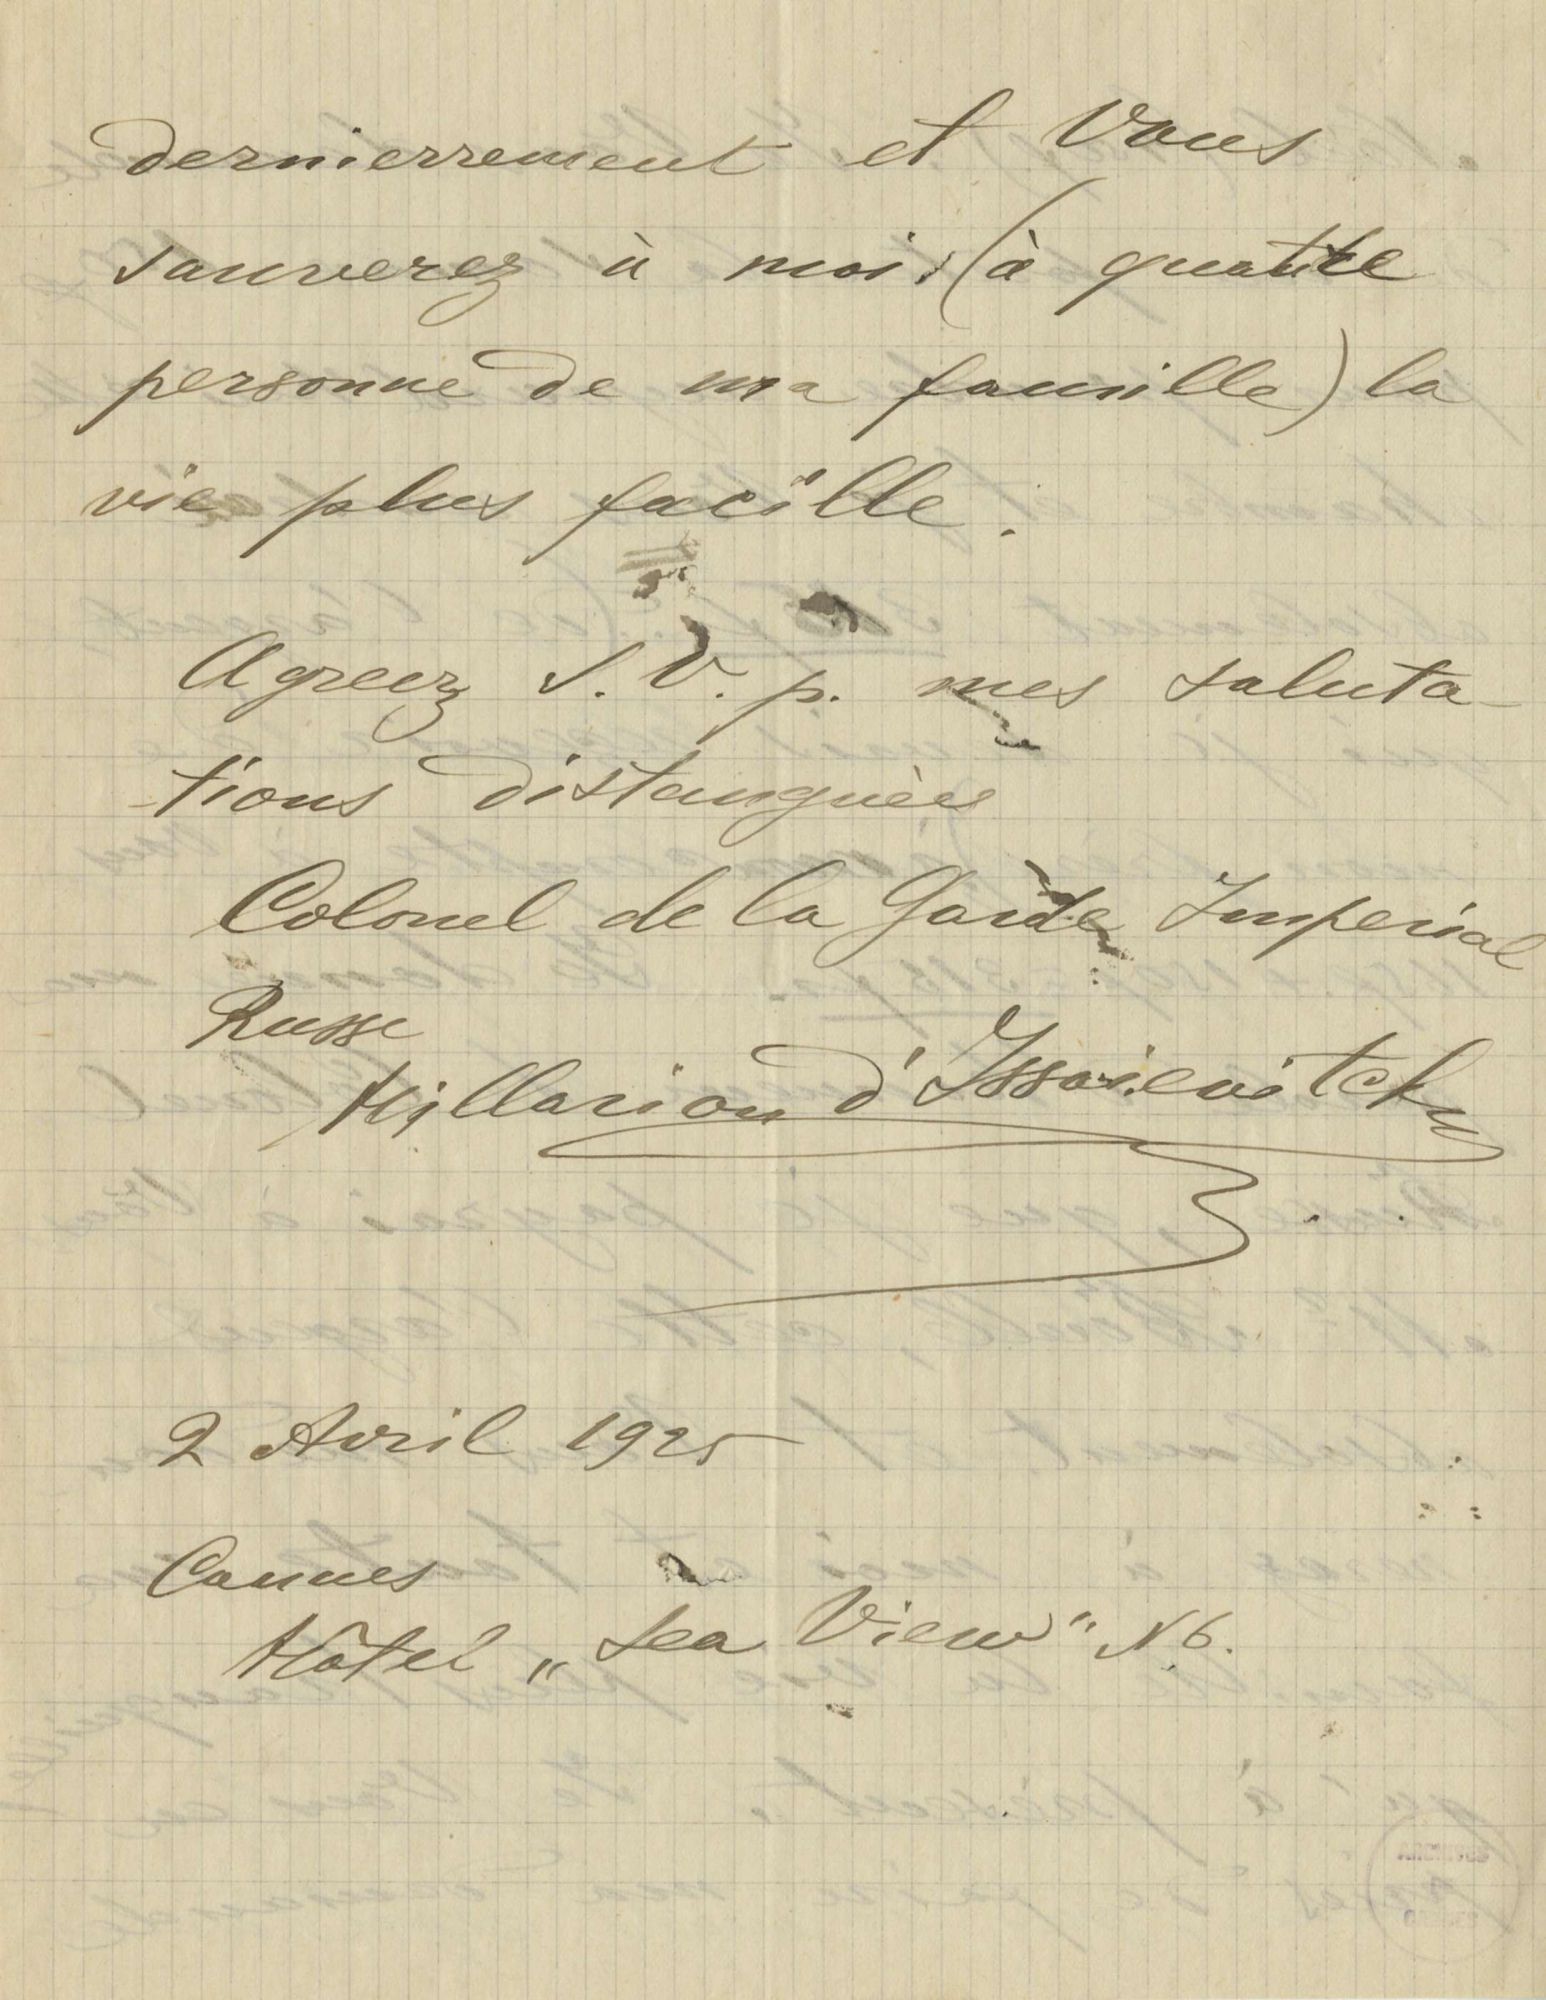 dernierrement et Vous
sauverez à moi, (à quattre
personne de ma famille) la
vie plus facille.
Agreez S. V. p. mes saluta-
-tions distanguèes
Colonel de la Garde Imperial
Russe
Hillarion d'Issaievitch
2 Avril 1925
Cannes
Hôtel „Sea View" N 6.